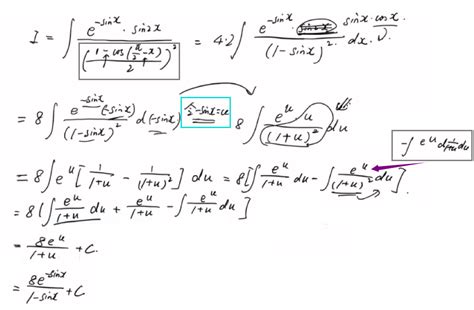 I = ∫ e^{-sinx} · sin2x / ((1 - cos(π/2 - x)) / 2)² = 4·2 ∫ e^{-sinx} · sinx · cosx / (1 - sinx)² · dx.
= 8 ∫ e^{-sinx} (-sinx) / (1 - sinx)² d(-sinx) 令 -sinx = u 8 ∫ e^u u / (1+u)² du
- ∫ e^u d 1/(1+u) du
= 8 ∫ e^u [ 1/(1+u) - 1/(1+u)² ] du = 8 [ ∫ e^u/(1+u) du - ∫ e^u/(1+u)² du ].
= 8 ( ∫ e^u/(1+u) du + e^u/(1+u) - ∫ e^u/(1+u) du ]
= 8e^u/(1+u) + C.
= 8e^{-sinx}/(1-sinx) + C